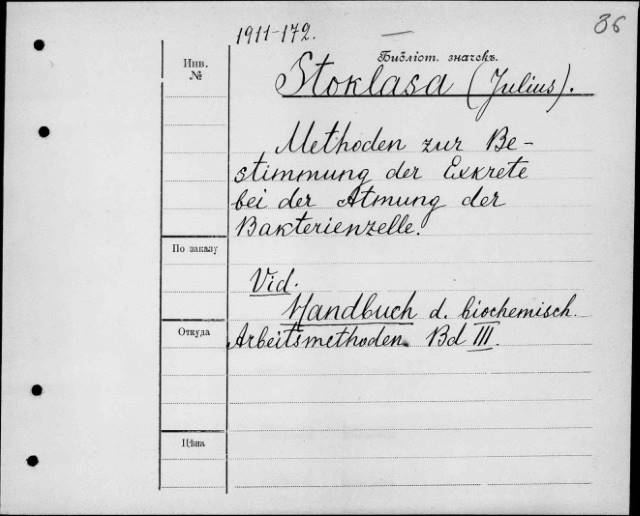 36
1911-172. —
Инв. №
Библіот. значекъ.
Stoklasa (Julius).
Methoden zur Be-
stimmung der Exkrete
bei der Atmung der
Bakterienzelle.
По заказу
Vid.
Handbuch d. biochemisch.
Откуда
Arbeitsmethoden. Bd III.
Цѣна